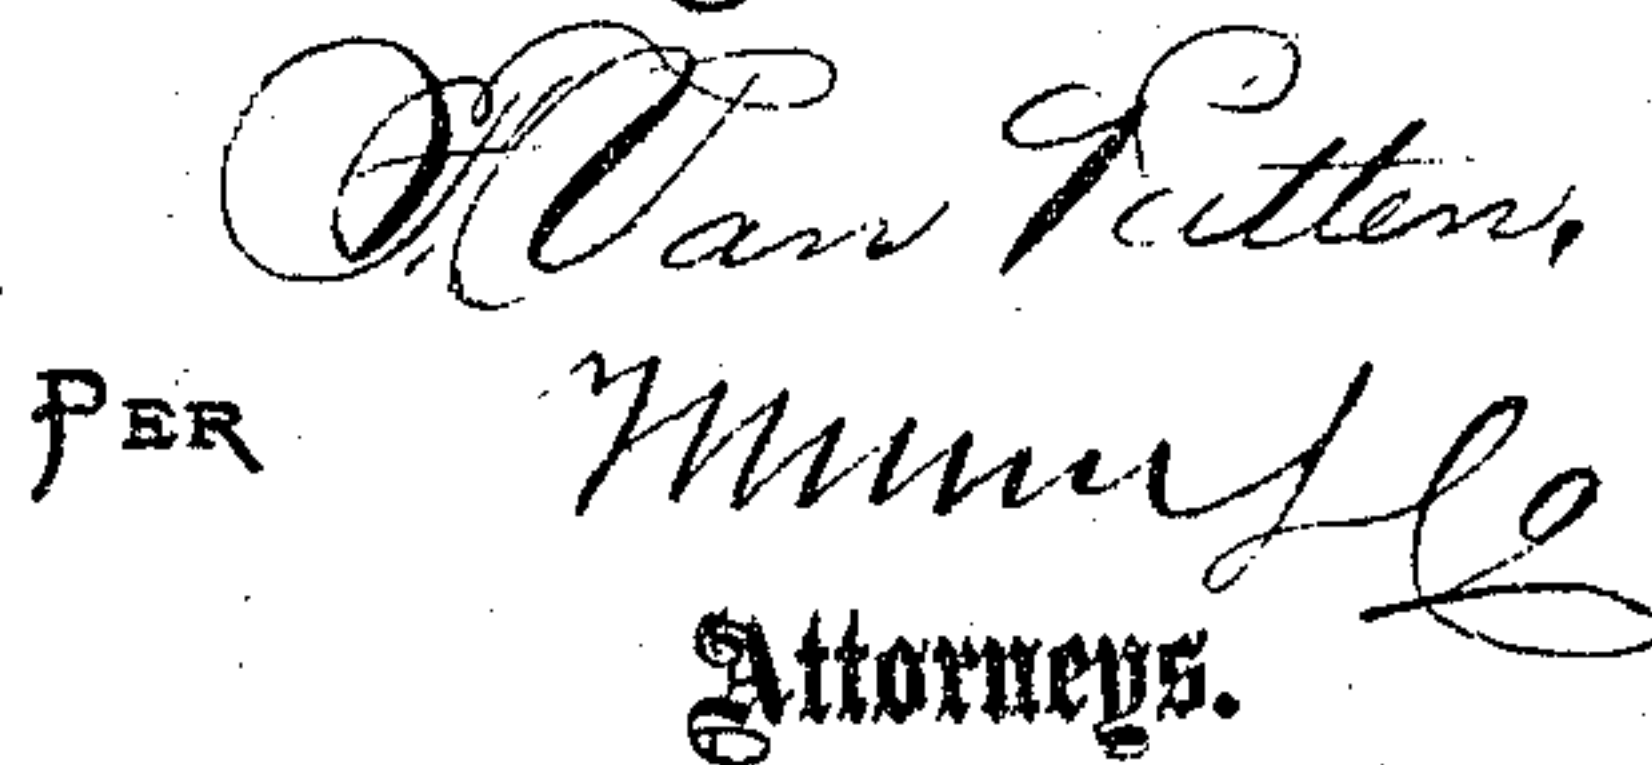 Van Patten,
PER Munn & Co
Attorneys.